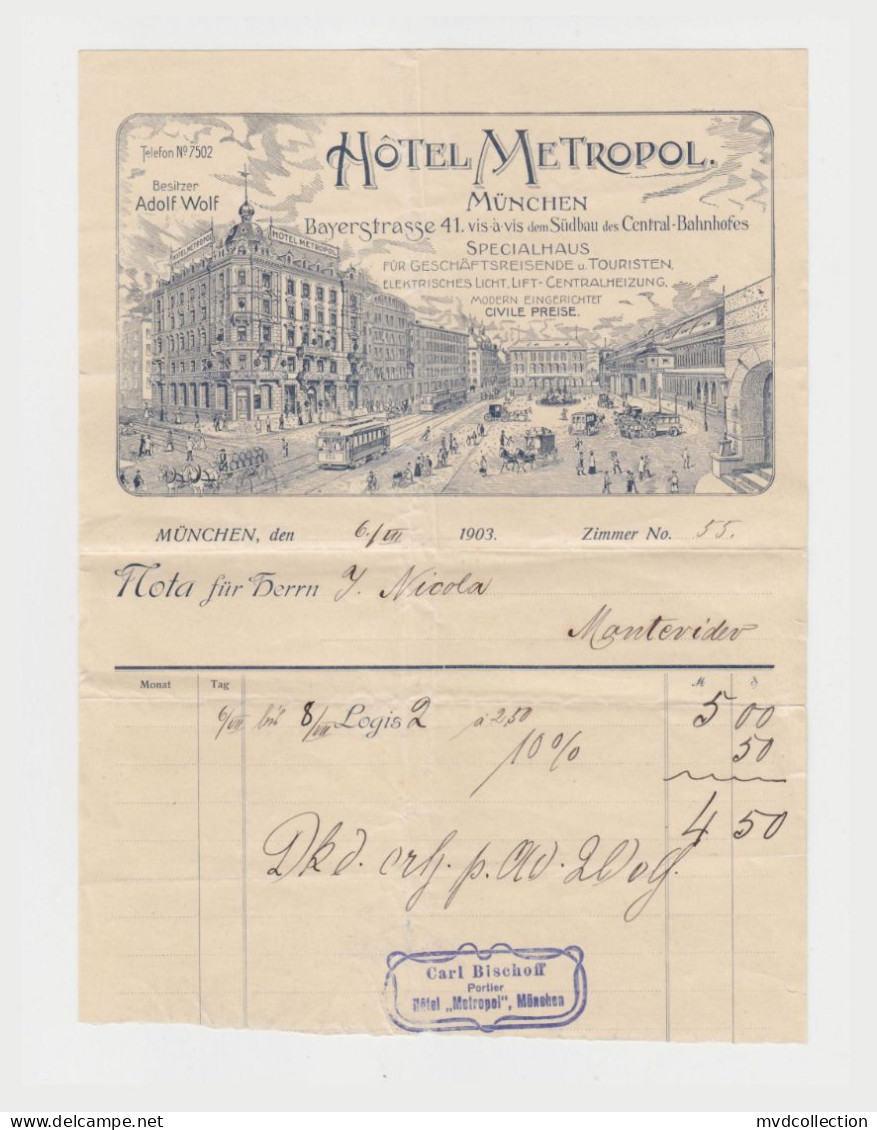 Telefon Nº 7502
HÔTEL METROPOL.
Besitzer
Adolf Wolf
MÜNCHEN
Bayerstrasse 41. vis-à-vis dem Südbau des Central-Bahnhofes
SPECIALHAUS
FÜR GESCHÄFTSREISENDE u. TOURISTEN,
ELEKTRISCHES LICHT, LIFT-CENTRALHEIZUNG.
MODERN EINGERICHTET
CIVILE PREISE.
HOTEL METROPOL
HOTEL METROPOL
MÜNCHEN, den 6./VII 1903. Zimmer No. 55.
Nota für Herrn J. Nicola
Montevideo
Monat Tag M ₰
6/VII bis 8/VII Logis 2 à 2,50 5 00
10% 50
4 50
Dkd. erh. p. Ad. Wolf.
Carl Bischoff
Portier
Hôtel „Metropol", München
delcampe.net
mvdcollection